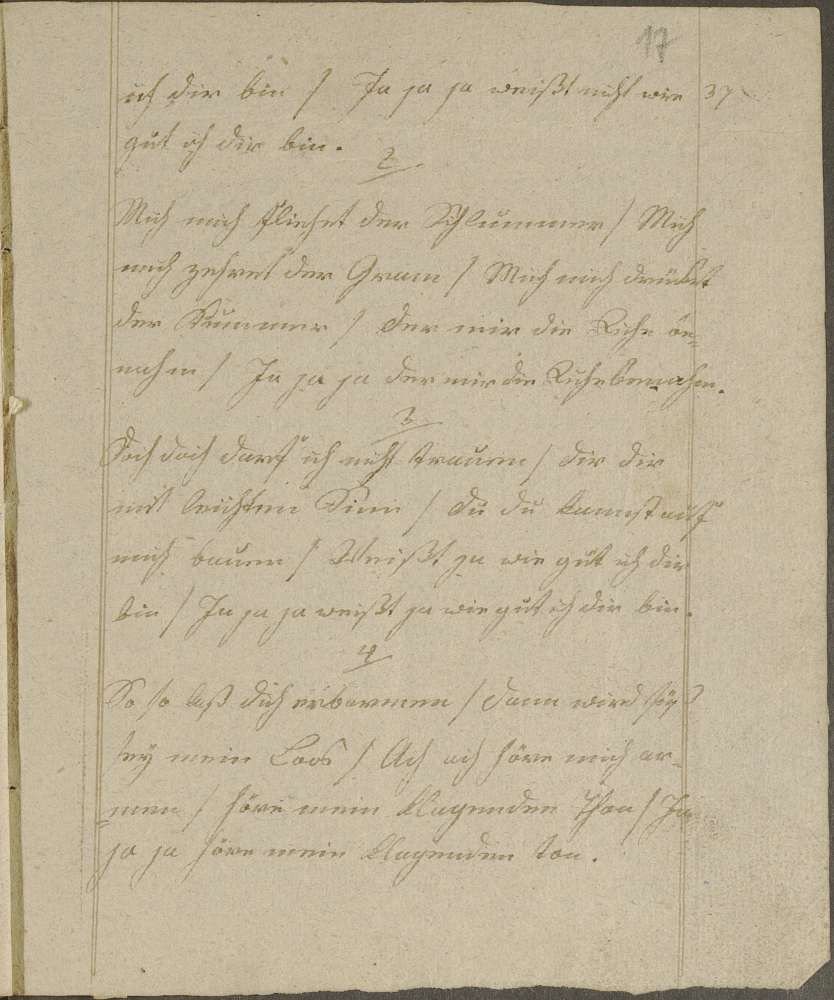 17
ich dir bin / Ja ja ja weißt nicht wie 37
gut ich dir bin.
2
Mich mich fliehet der Schlummer / Mich
mich zehret der Gram / Mich mich drücket
der Kummer / der mir die Ruhe
nahm / Ja ja ja der mir die Ruhe benahm.
3
Doch doch darf ich nicht trauen / dir dir
mit leichten Sinn / du du kannst auf
mich bauen / Weißt ja wie gut ich dir
bin / Ja ja ja weißt ja wie gut ich dir bin.
4
So so laß dich erbarmen / dann wird süß
sey mein Loos / Ach ach höre mich ar-
-men / höre mein klagenden Thon / Ja
ja ja höre mein klagenden ton.